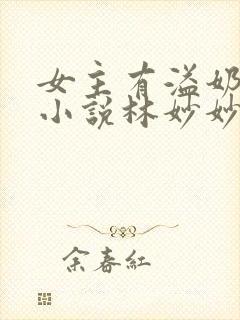 女主有溢奶
小說林妙妙
余春紅